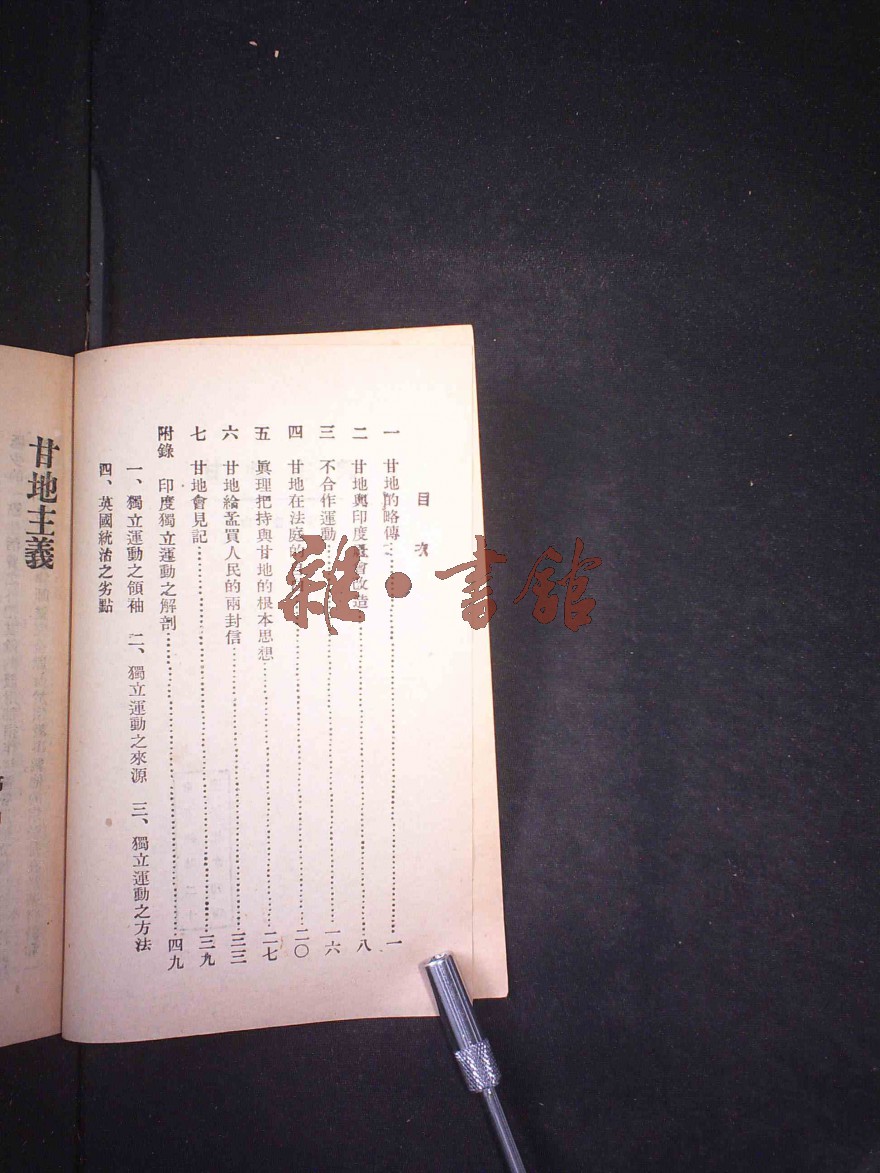 目次
一 甘地的略傳……一
二 甘地與印度社會改造……八
三 不合作運動……一六
四 甘地在法庭的……二〇
五 眞理把持與甘地的根本思想……二七
六 甘地給孟買人民的兩封信……三三
七 甘地會見記……三九
附錄 印度獨立運動之解剖……四九
一、獨立運動之領袖 二、獨立運動之來源 三、獨立運動之方法
四、英國統治之劣點
甘地主義
雜·書館